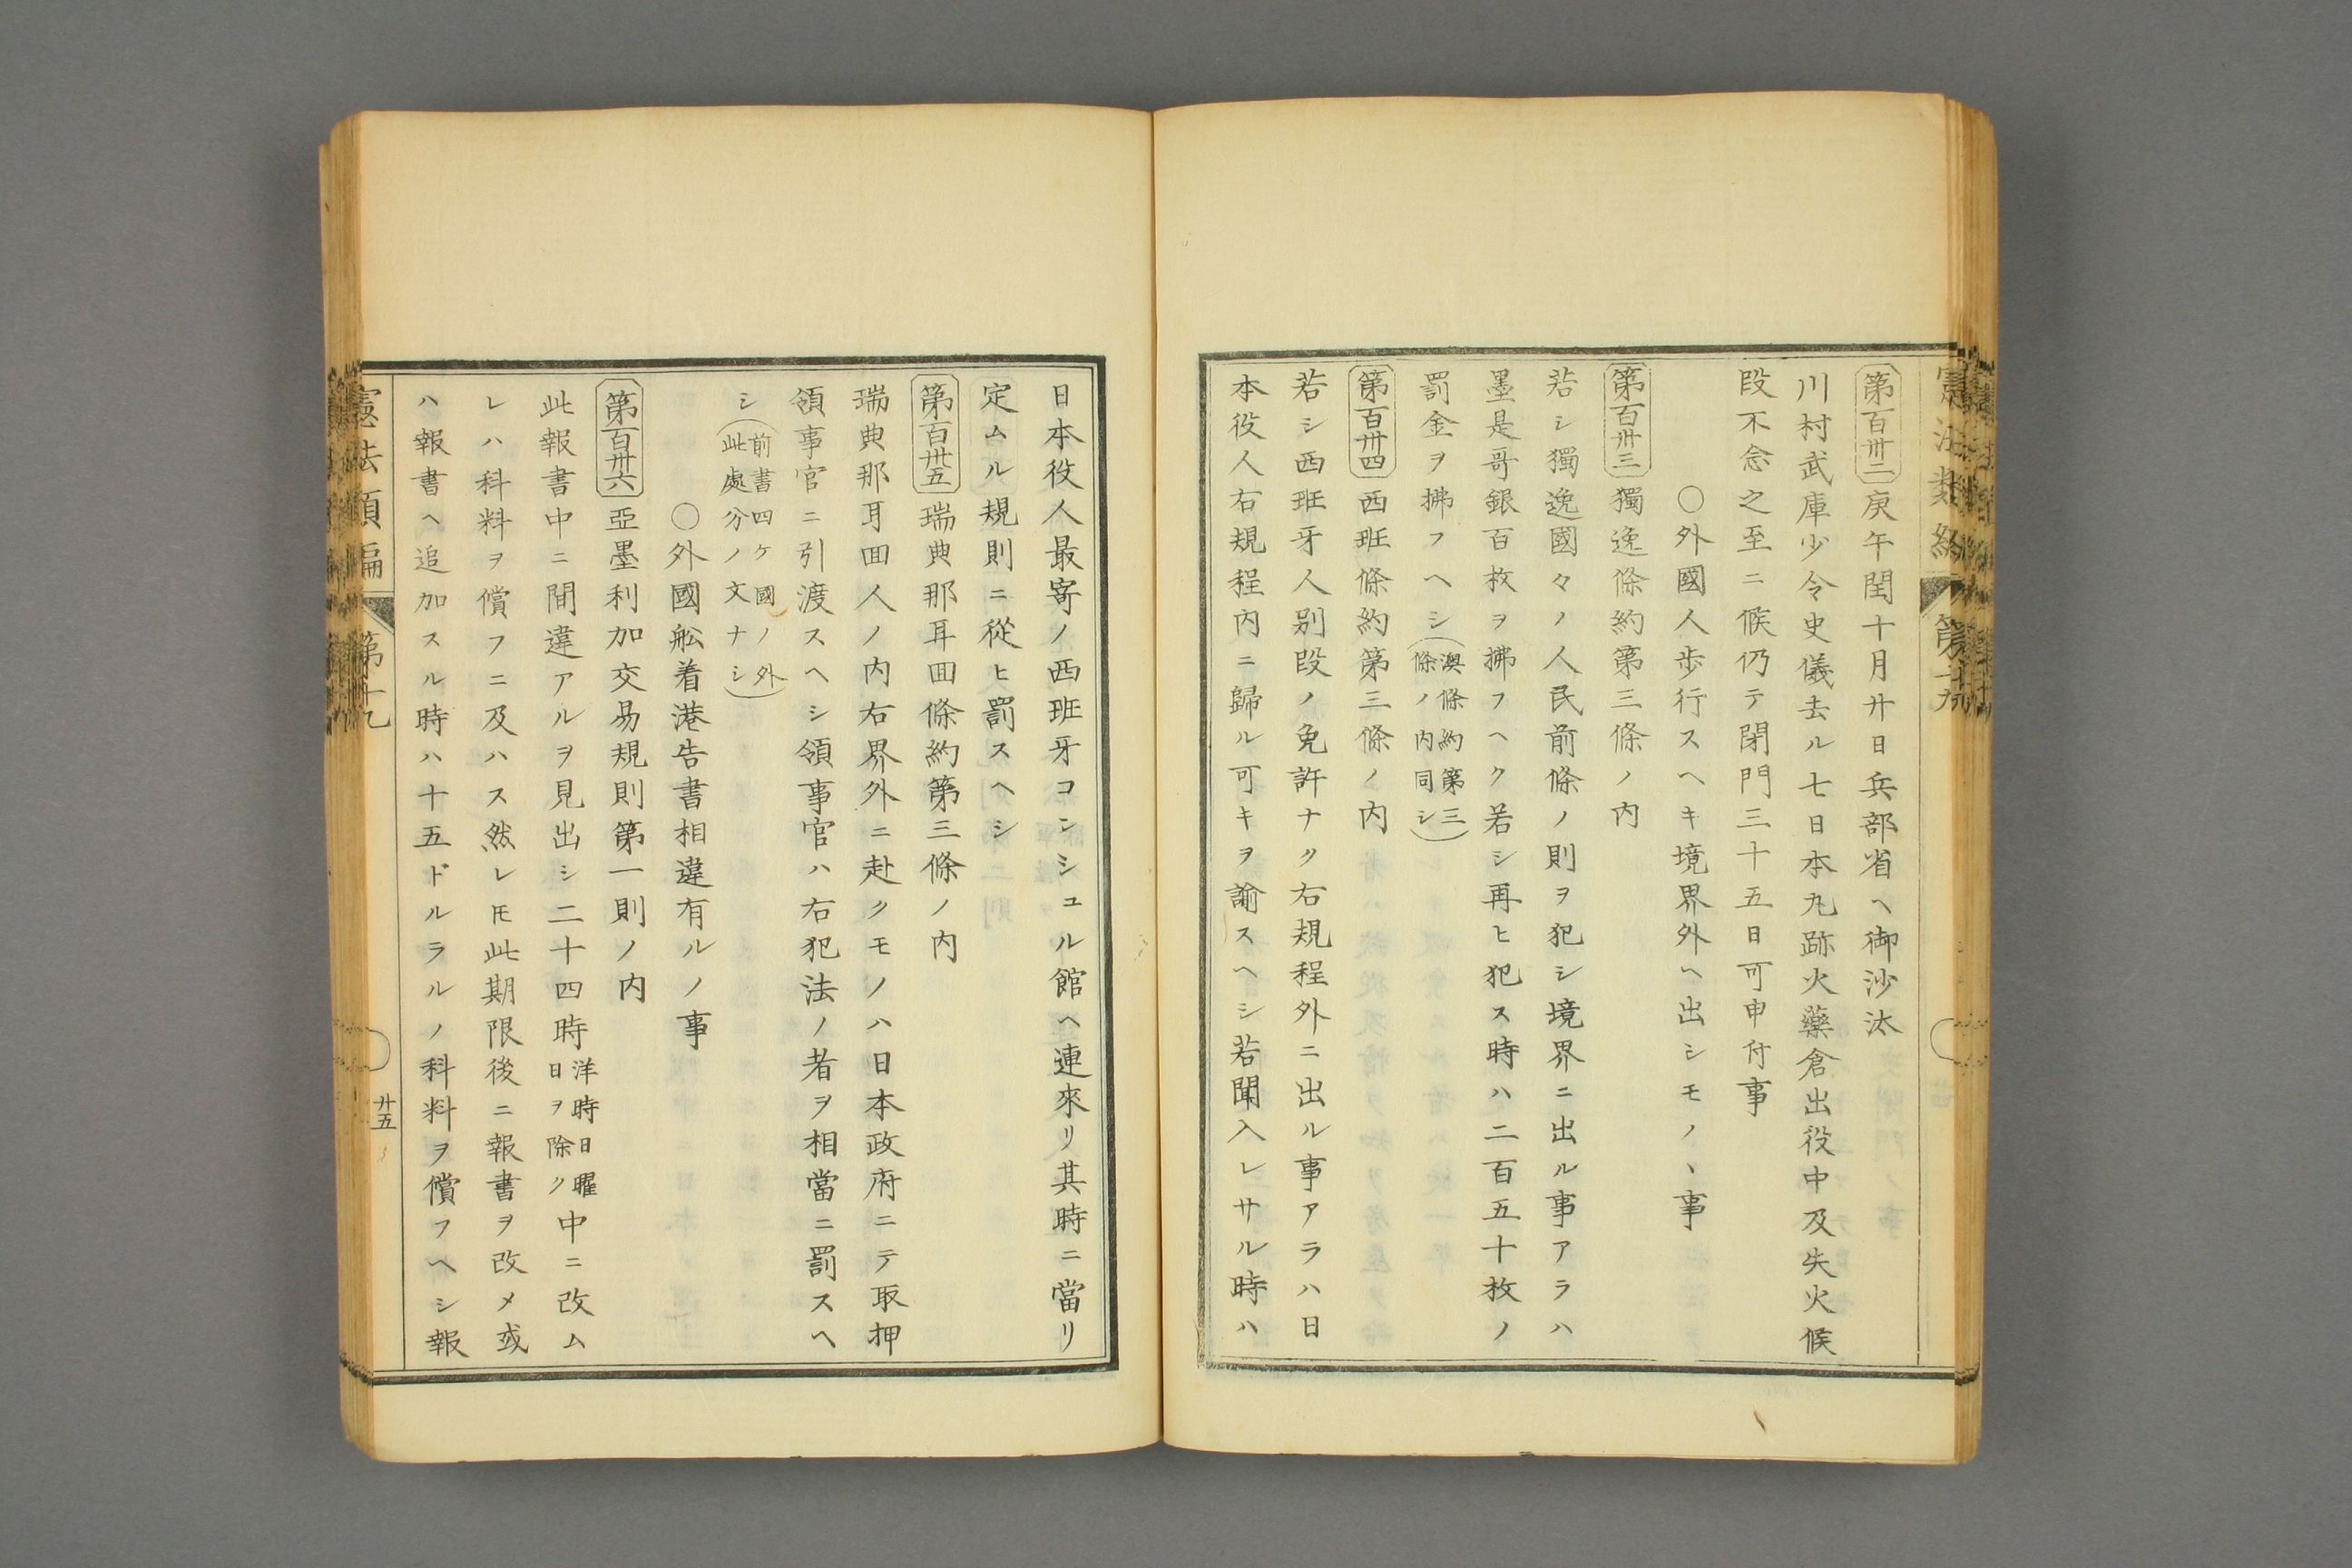 第百卅二 庚午閏十月廿日兵部省ヘ御沙汰
川村武庫少令史儀去ル七日本丸跡火藥倉出役中及失火候
段不念之至ニ候仍テ閉門三十五日可申付事
○外國人歩行スヘキ境界外ヘ出シモノヽ事
第百卅三 獨逸條約第三條ノ内
若シ獨逸國々ノ人民前條ノ則ヲ犯シ境界ニ出ル事アラハ
墨是哥銀百枚ヲ拂フヘク若シ再ヒ犯ス時ハ二百五十枚ノ
罰金ヲ拂フヘシ(澳條約第三條ノ内同シ)
第百卅四 西班條約第三條ノ内
若シ西班牙人別段ノ免許ナク右規程外ニ出ル事アラハ日
本役人右規程内ニ歸ル可キヲ諭スヘシ若聞入レサル時ハ
日本役人最寄ノ西班牙コンシュル館ヘ連來リ其時ニ當リ
定ムル規則ニ從ヒ罰スヘシ
第百卅五 瑞典那耳囬條約第三條ノ内
瑞典那耳囬人ノ内右界外ニ赴クモノハ日本政府ニテ取押
領事官ニ引渡スヘシ領事官ハ右犯法ノ者ヲ相當ニ罰スヘ
シ(前書四ケ國ノ外此處分ノ文ナシ)
○外國舩着港告書相違有ルノ事
第百卅六 亞墨利加交易規則第一則ノ内
此報書中ニ間違アルヲ見出シ二十四時洋時日曜日ヲ除ク中ニ改ム
レハ科料ヲ償フニ及ハス然レ𪜈此期限後ニ報書ヲ改メ或
ハ報書ヘ追加スル時ハ十五ドルラルノ科料ヲ償フヘシ報
第十九
廿五